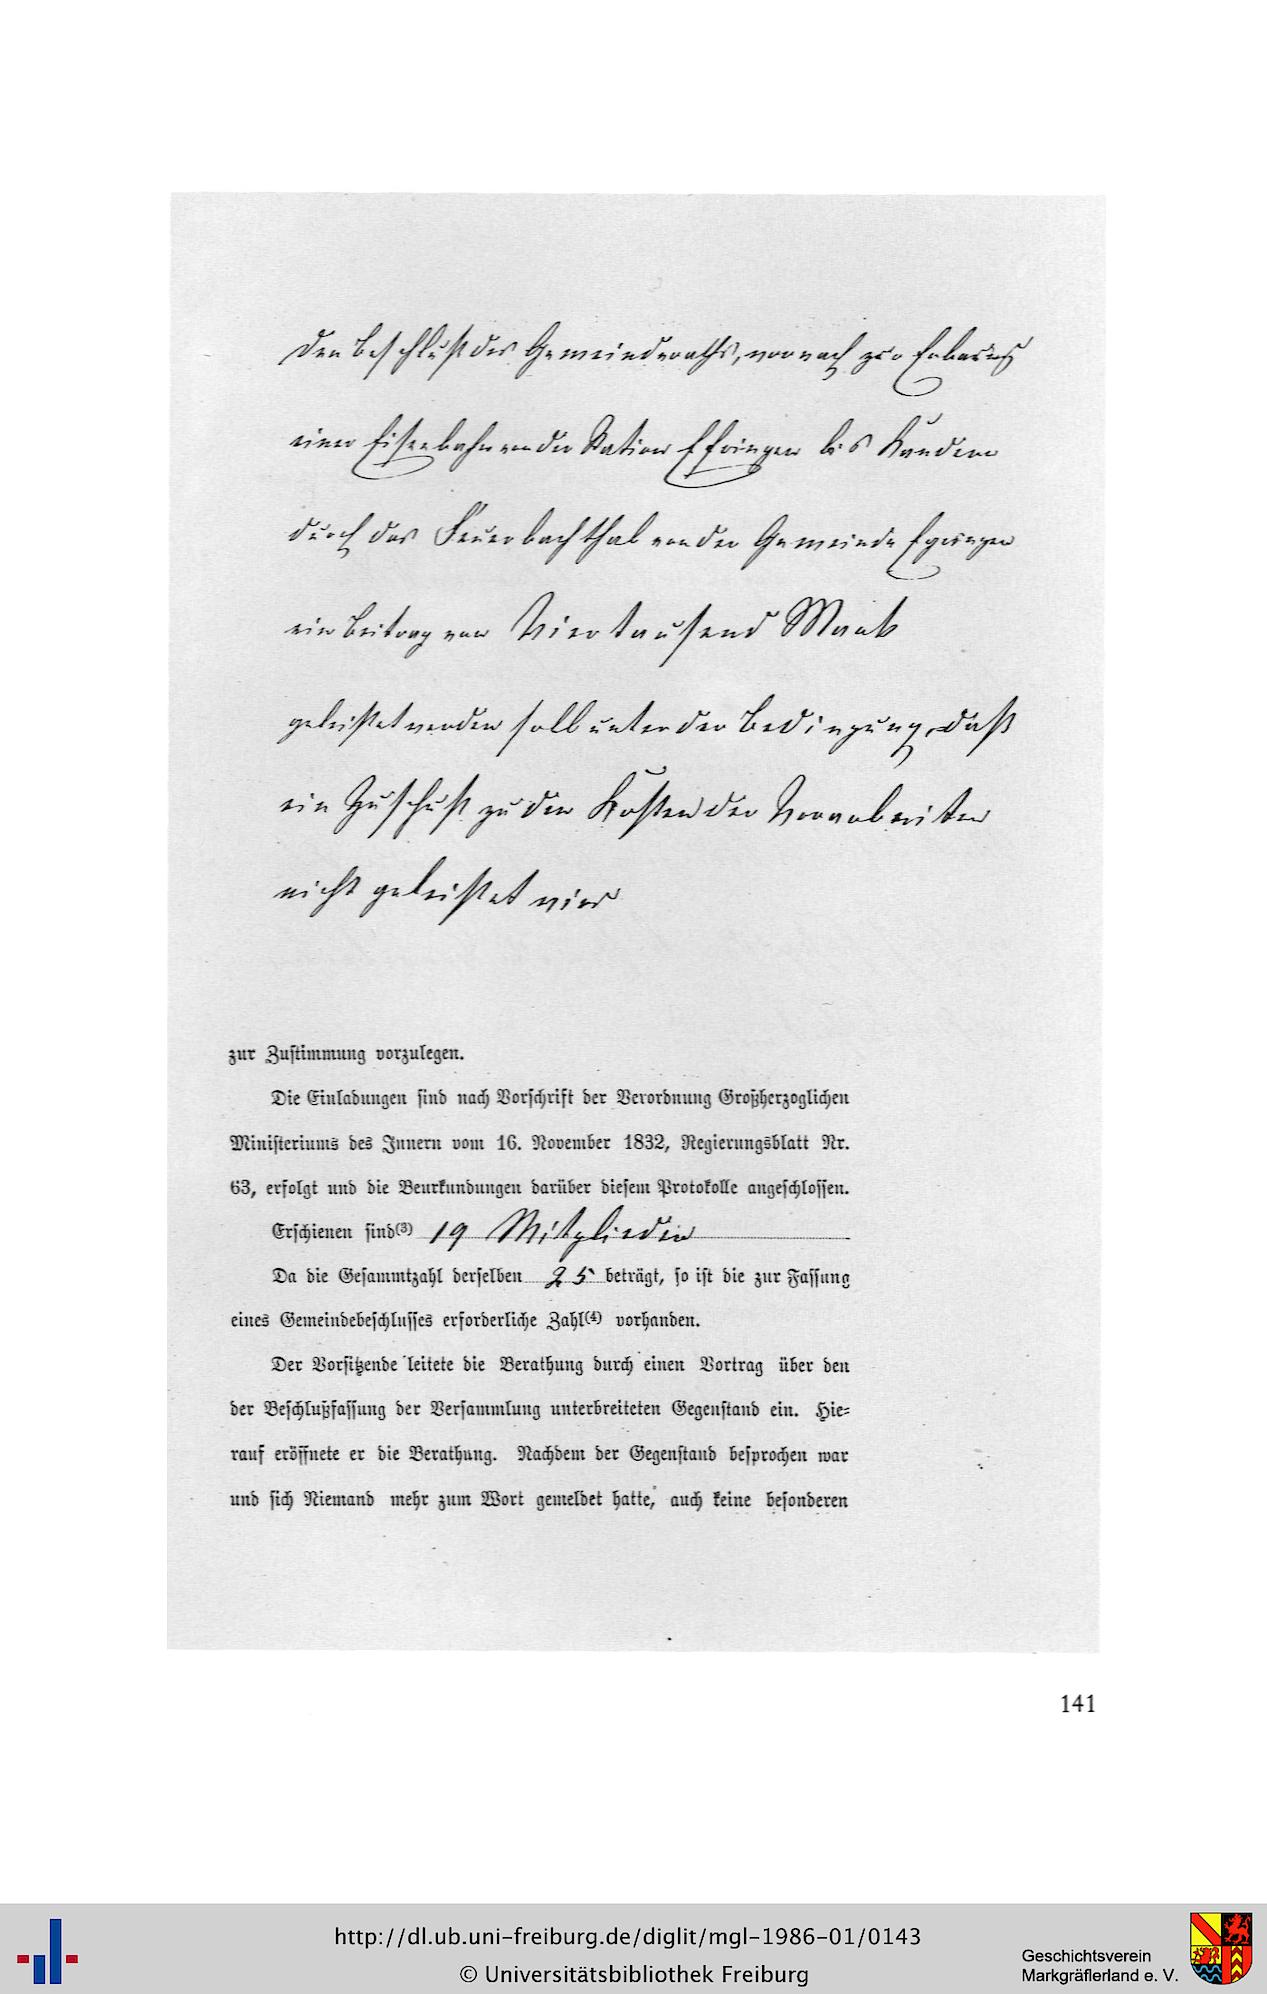 den Beschluß des Gemeinderaths, wonach zur Erbauung
einer Eisenbahn von der Station Efringen bis Kandern
durch das Feuerbachthal von der Gemeinde Egringen
ein Beitrag von Viertausend Mark
geleistet werden soll unter der Bedingung, daß
ein Zuschuß zu den Kosten der Vorarbeiten
nicht geleistet wird
zur Zustimmung vorzulegen.
Die Einladungen sind nach Vorschrift der Verordnung Großherzoglichen
Ministeriums des Innern vom 16. November 1832, Regierungsblatt Nr.
63, erfolgt und die Beurkundungen darüber diesem Protokolle angeschlossen.
Erschienen sind(3) 19 Mitglieder
Da die Gesammtzahl derselben 25 beträgt, so ist die zur Fassung
eines Gemeindebeschlusses erforderliche Zahl(4) vorhanden.
Der Vorsitzende leitete die Berathung durch einen Vortrag über den
der Beschlußfassung der Versammlung unterbreiteten Gegenstand ein. Hie-
rauf eröffnete er die Berathung. Nachdem der Gegenstand besprochen war
und sich Niemand mehr zum Wort gemeldet hatte, auch keine besonderen
141
http://dl.ub.uni-freiburg.de/diglit/mgl-1986-01/0143
© Universitätsbibliothek Freiburg
Geschichtsverein
Markgräflerland e. V.